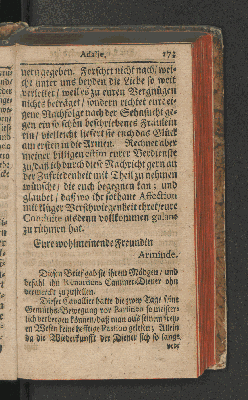 Adalie. 173
nern gegeben. Forschet nicht nach / wel-
che unter uns beyden die Liebe so weit
verleitet / weil es zu euren Vergnügen
nichts beyträget / sondern richtet eure ei-
gene Nachfolge nach der Sehnsucht ge-
gen ein so schön beschriebenes Fräulein
ein / vielleicht liefert sie euch das Glück
am ersten in die Armen. Rechnet aber
meiner billigen estim eurer Verdienste
zu / daß ich durch diese Nachricht gern an
der Zufriedenheit mit Theil zu nehmen
wünsche / die euch begegnen kan; und
glaubet / daß wo ihr sothane Affection
mit kluger Verschwiegenheit ehret / eure
Conduite alsdenn vollkommen galant
zu rühmen hat.
Eure wohlmeinende Freundin
Arminde.
Diesen Brief gab sie ihrem Mädgen / und
befahl ihn Renardens Cammer-Diener ohn
vermerckt zuzustellen.
Dieser Cavallier hatte die zwey Tage seine
Gemüths-Bewegung vor Barsinda so meister-
lich verbergen können / daß man aus seinem
Wesen keine hefftige Passion gelesen; Allein
da die Wiederkunfft der Diener sich so lange
ver-